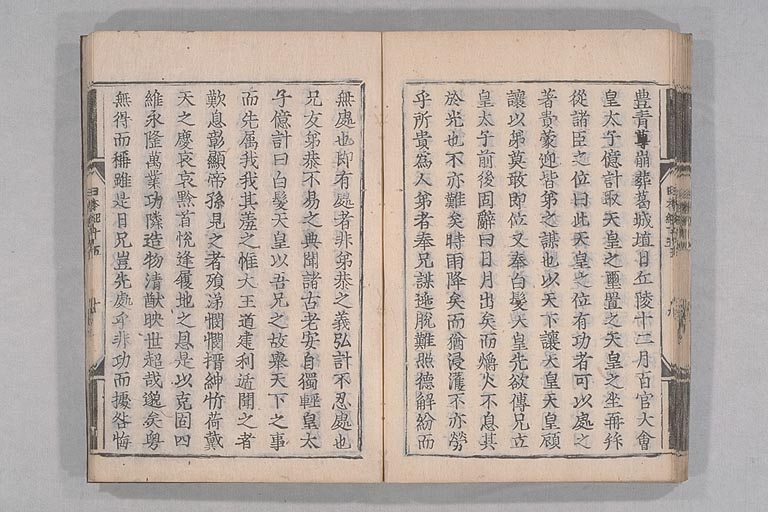 豊青尊崩葬葛城埴口丘陵十二月百官大會
皇太子億計取天皇之璽置之天皇之坐再拜
從諸臣之位曰此天皇之位有功者可以處之
著貴蒙迎皆弟之謀也以天下讓天皇天皇顧
讓以弟莫敢即位又奉白髮天皇先欲傳兄立
皇太子前後固辭曰日月出矣而爝火不息其
於光也不亦難矣時雨降矣而猶浸灌不亦勞
乎所貴為人弟者奉兄謀逃脫難照德解紛而
無處也即有處者非弟恭之義弘計不忍處也
兄友弟恭不易之典聞諸古老安自獨輕皇太
子億計曰白髮天皇以吾兄之故舉天下之事
而先属我我其羞之惟大王道建利遁聞之者
歎息彰顯帝孫見之者殞涕憫憫搢紳忻荷戴
天之慶哀哀黔首悅逢履地之恩是以克固四
維永隆萬葉功隣造物清猷映世超哉邈矣粤
無得而稱雖是曰兄豈先處乎非功而據咎悔